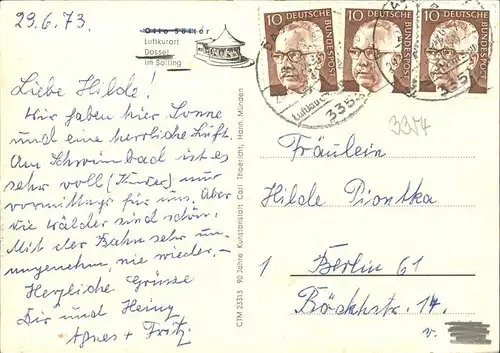 29.6.73.
Otto Sölter
Luftkurort
Dassel
im Solling
10 DEUTSCHE BUNDESPOST
10 DEUTSCHE BUNDESPOST
10 DEUTSCHE BUNDESPOST
3354
3354
Liebe Hilde!
Wir haben hier Sonne
und eine herrliche Luft.
Am Schwimbad ist es
sehr voll (Kinder) nur
vormittags für uns. Aber
die Wälder sind schön.
Mit der Bahn sehr un-
angenehm, nie wieder.-
Herzliche Grüsse
Dir und Heinz
Agnes + Fritz.
CTM 23313 90 Jahre Kunstanstalt Carl Thoericht, Hann. Münden
Fräulein
Hilde Piontka
1 Berlin 61
Böckhstr. 14.
v.